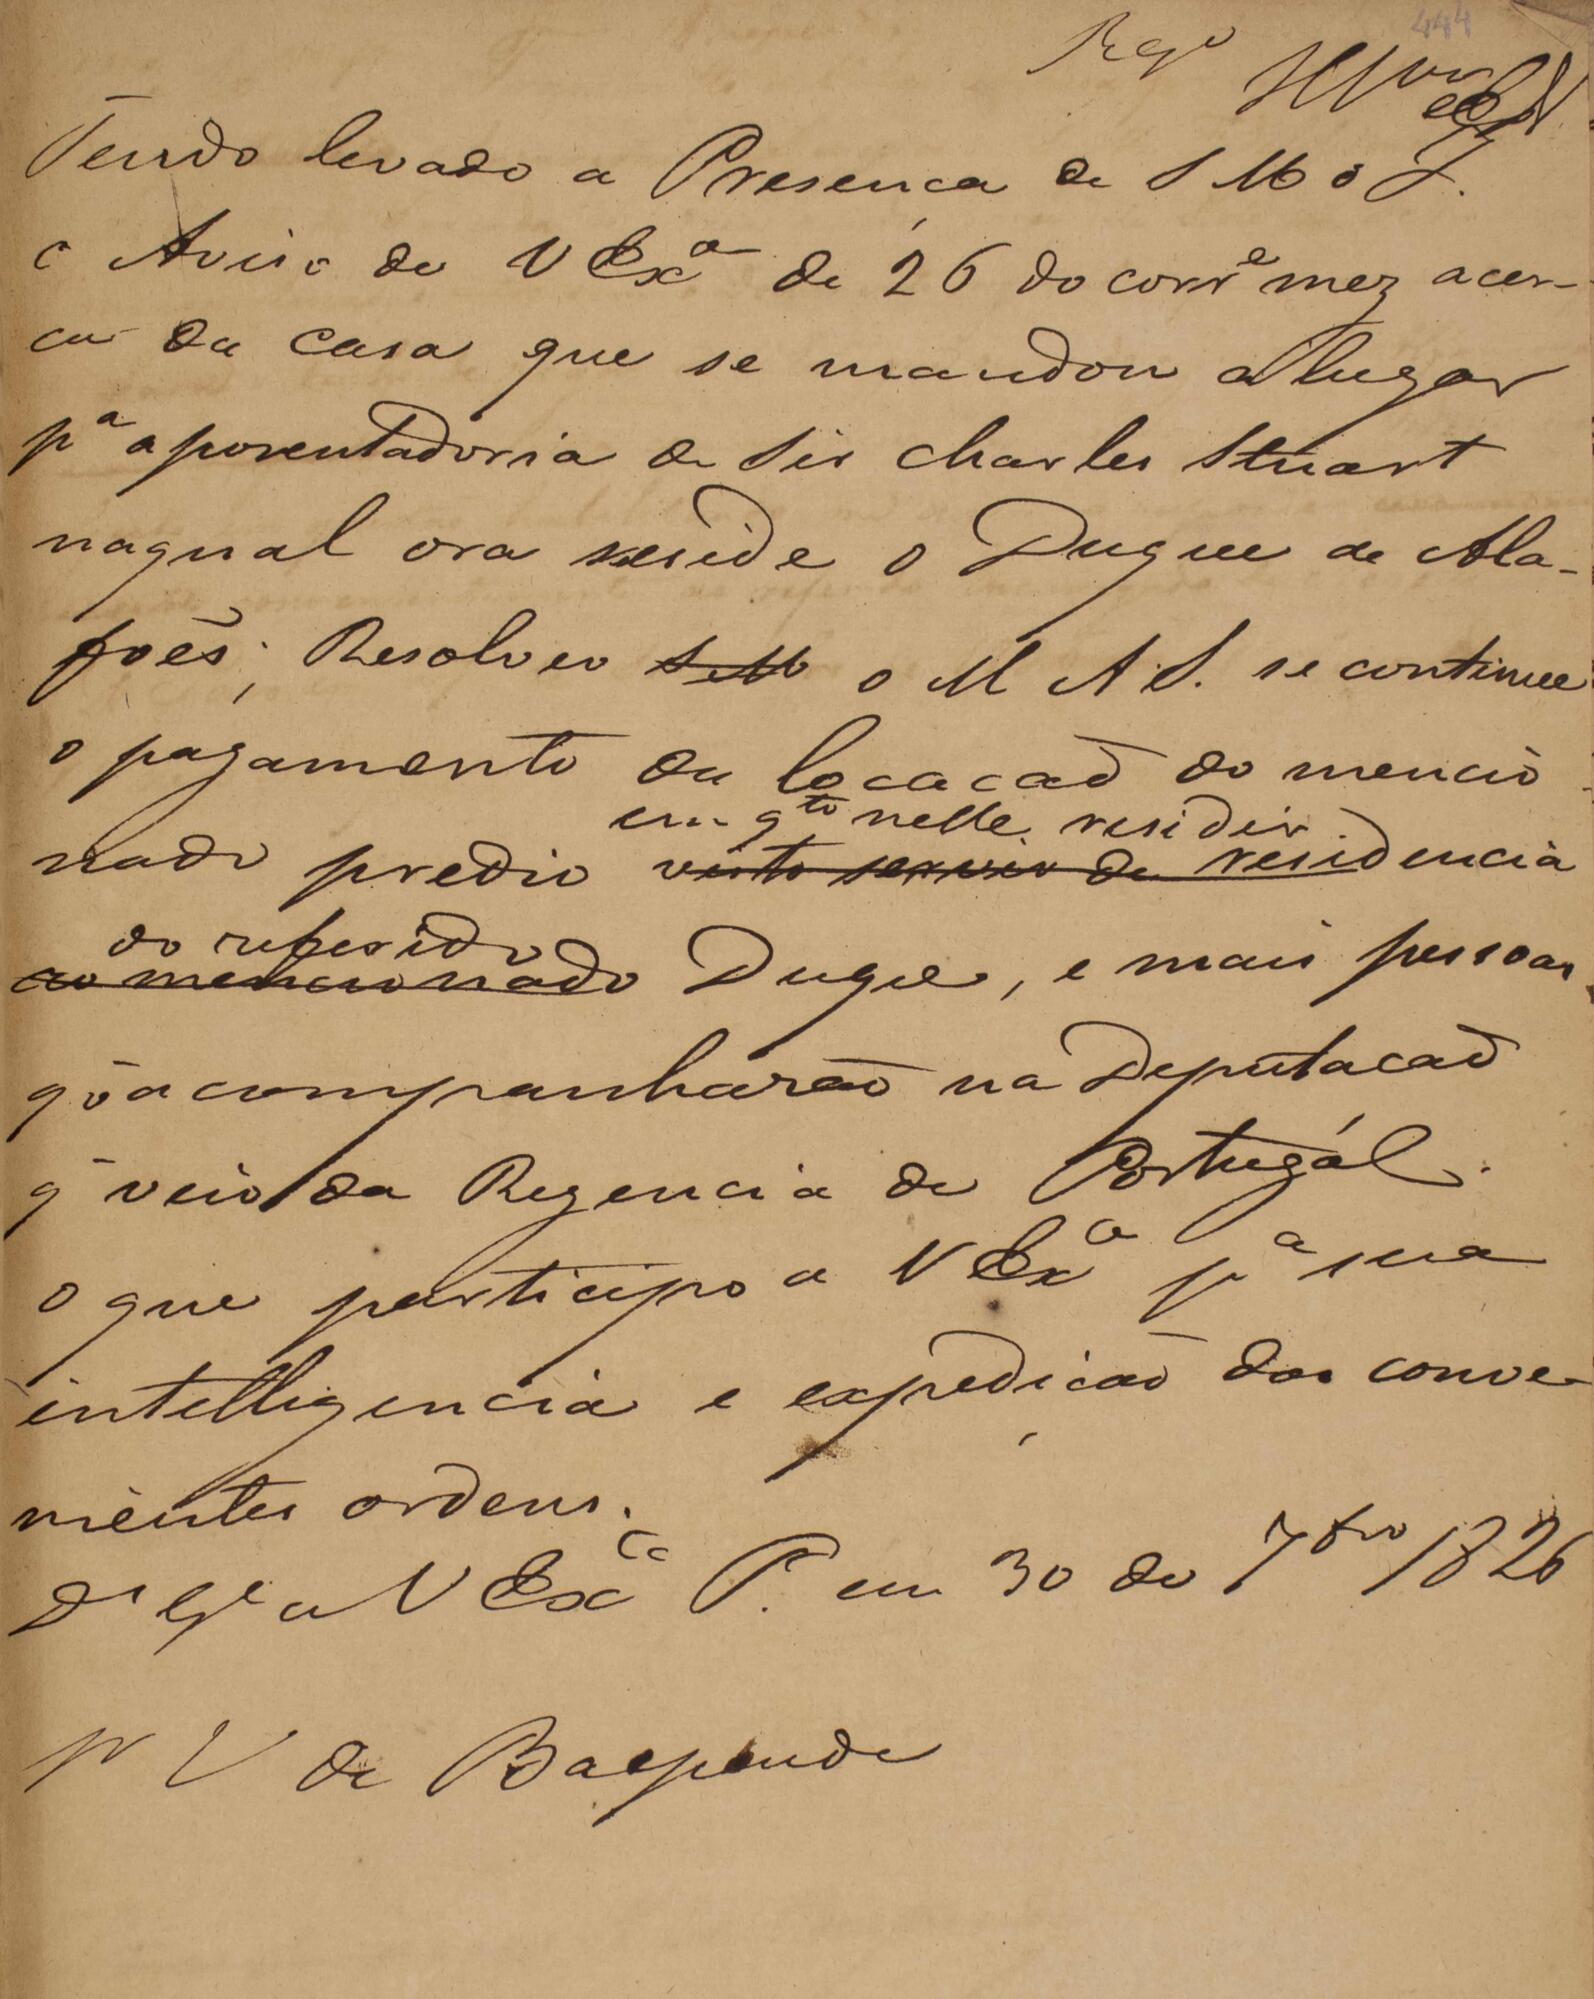 444
Reg.o
Tendo levado a Presença de S M o I.
o Aviso de V Ex.a de 26 do corr.e mez acer-
ca da casa que se mandou alugar
p.a aposentadoria de Sir Charles Stuart
na qual ora reside o Duque de Ala-
foẽs; Resolveo S M o M A S. se continue
o pagamento da locaçaõ do mencio
em q.to nelle residir
nado predio visto servir de residencia
do referido
ao mencionado Duque, e mais pessoas
q̃ o acompanharaõ na Deputaçaõ
q̃ veio da Regencia de Portugál.
O que participo a V Ex.a p.a sua
intelligencia e expediçaõ das conve-
nientes ordens.
D.s G.e a V Ex.ca P. em 30 de 7bro 1826
V de Baependi